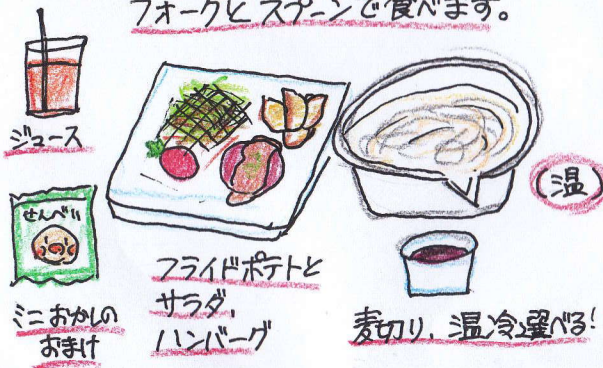 フォークとスプーンで食べます。
ジュース
せんべい
ミニおかしの
おまけ
フライドポテトと
サラダ、
ハンバーグ
温
麦切り、温冷選べる!